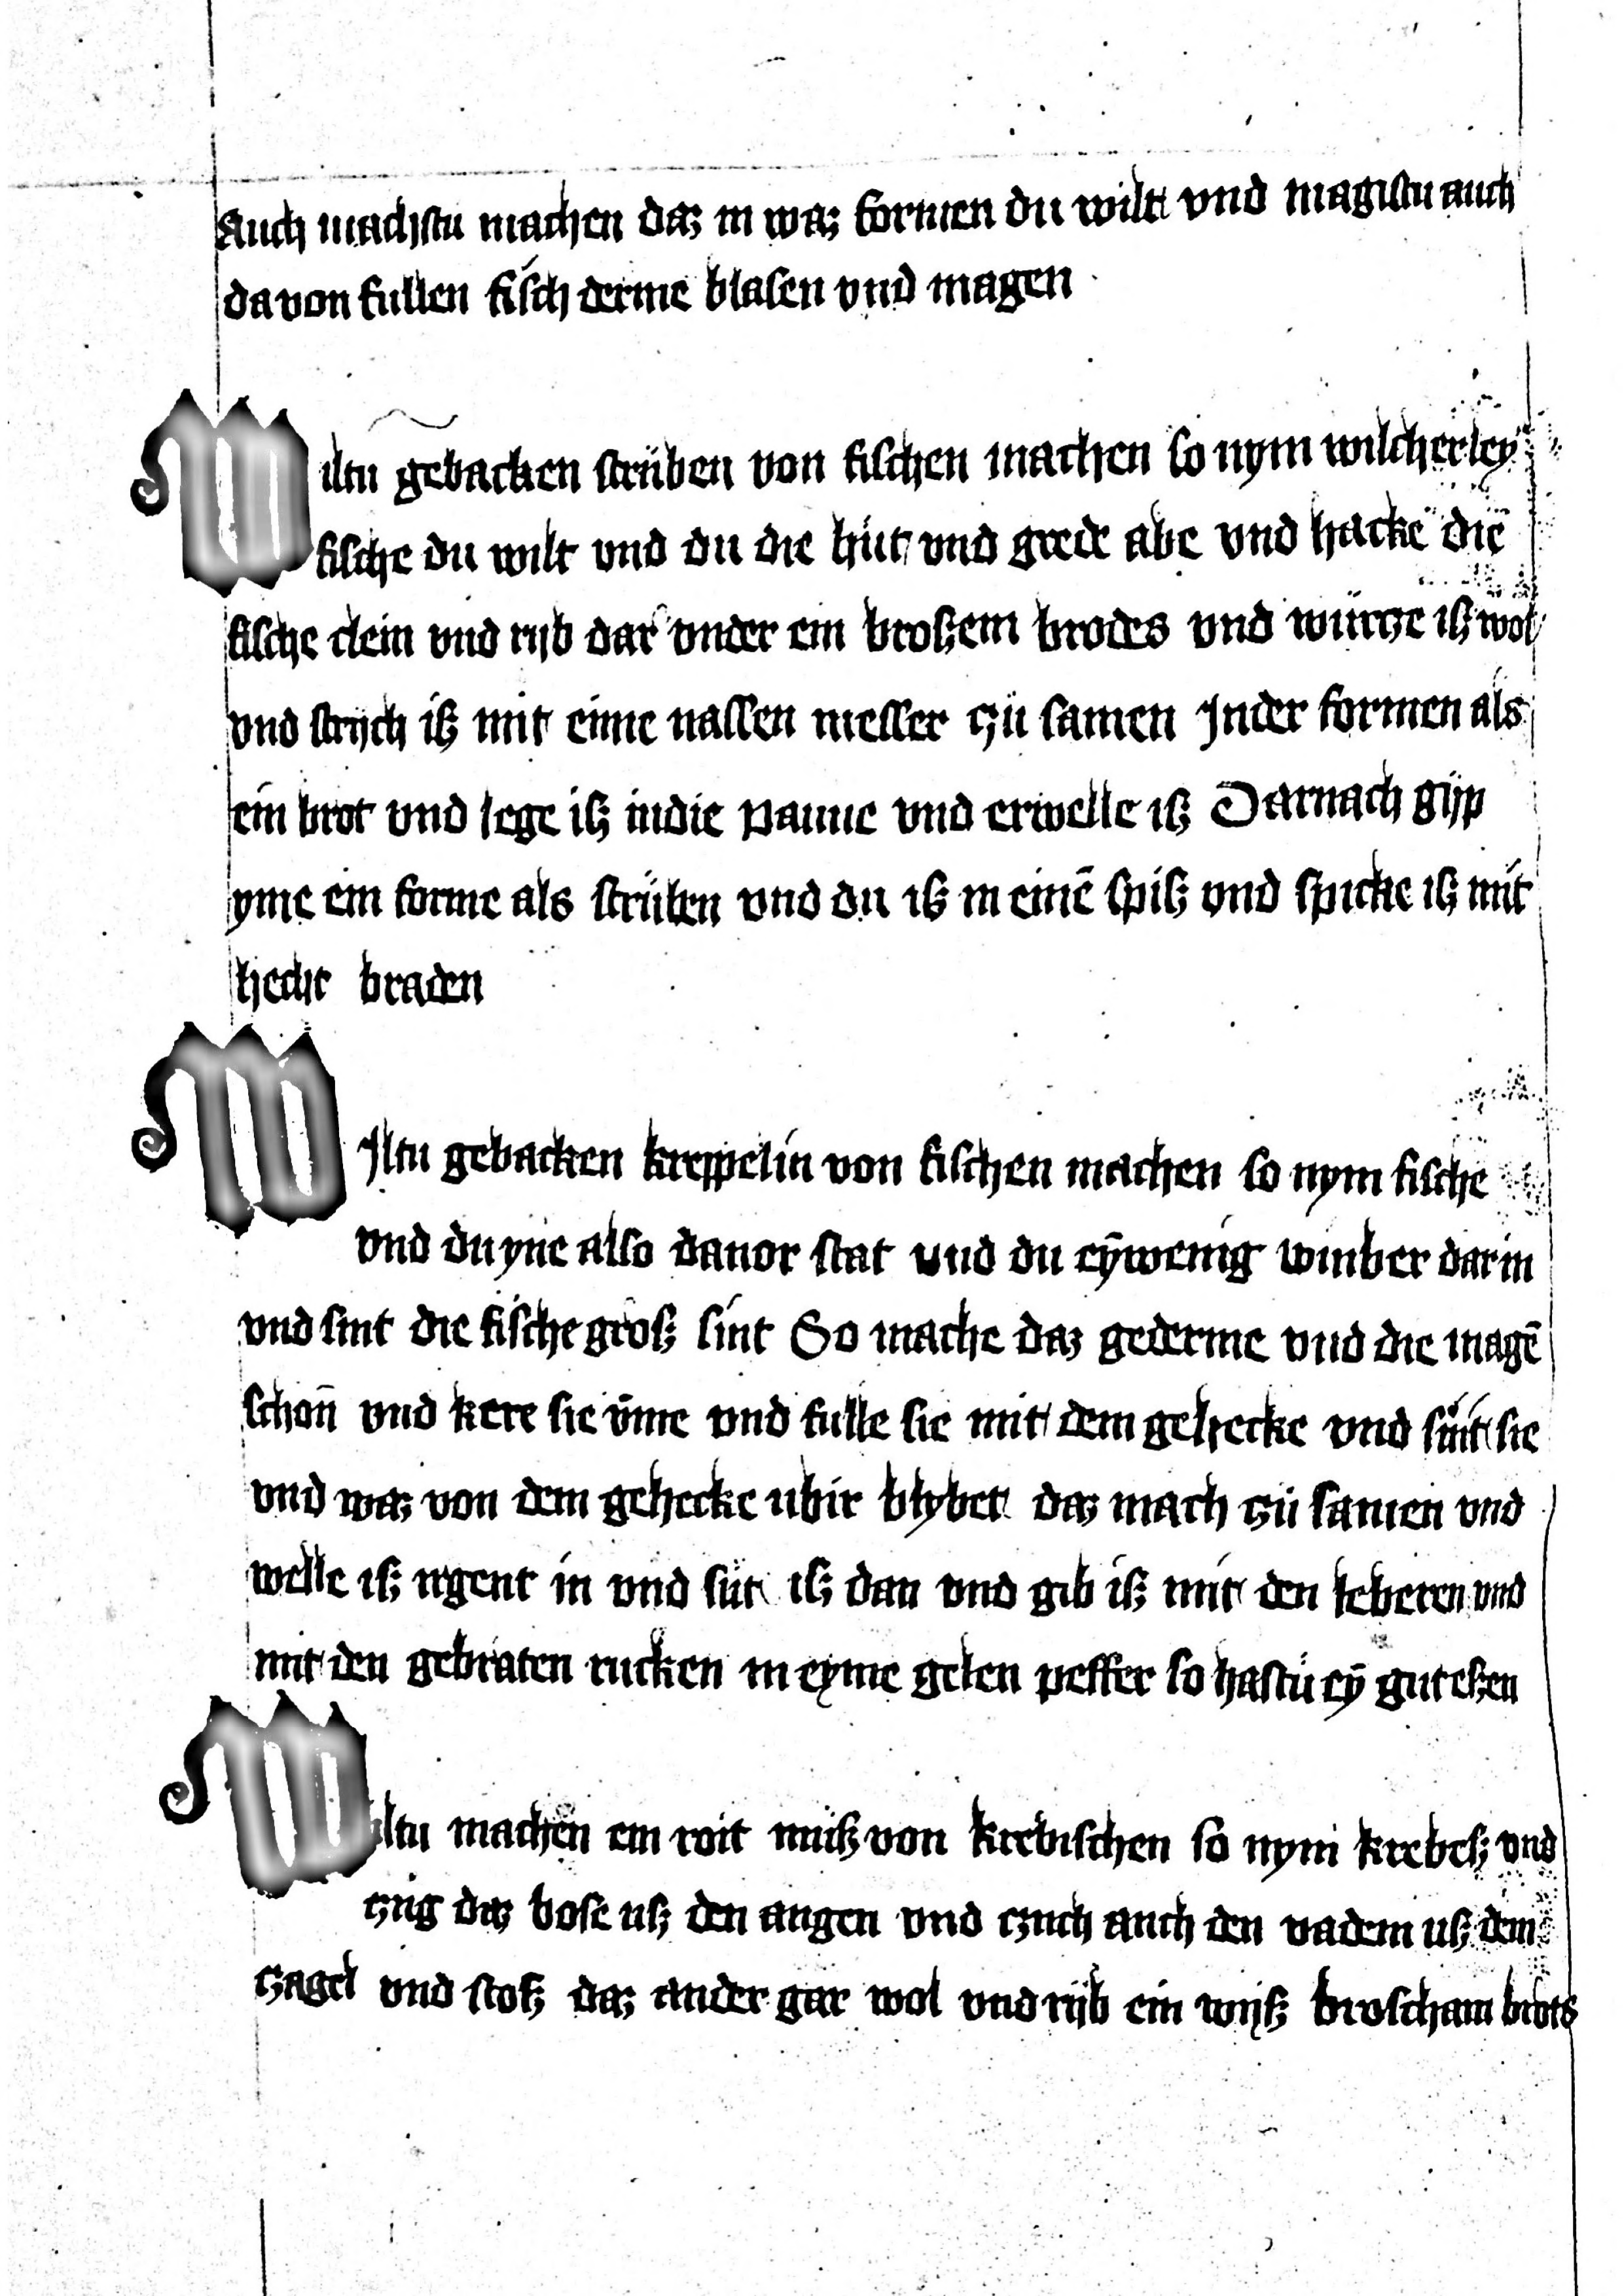 Auch machstu machen daz in waz formen du wilt vnd magistu auch
da von fullen fisch derme blasen vnd magen
Wiltu gebacken strüben von fischen machen so nym wilcherley
fische du wilt vnd du die hüt vnd grede abe vnd hacke die
fische clein vnd rijb dar vnder ein broßem brodes vnd würcze iß wol
vnd strijch iß mit eime nassen messer czü samen Jnder formen als
ein brot vnd lege iß indie panne vnd erwelle iß Darnach gijp
yme ein forme als strüben vnd du iß in einē spiß vnd spicke iß mit
hecht braden
WJltu gebacken kreppelin von fischen machen so nym fische
vnd du yne also dauor stat vnd du eȳ wenig winber dar in
vnd sint die fische groß sint So mache daz gederme vnd die magē
schon̄ vnd kere sie v̄me vnd fulle sie mit dem gehecke vnd süit sie
vnd waz von dem gehecke ubir blybet daz mach czü samen vnd
welle iß irgent in vnd süt iß dan vnd gib iß mit den leberen vnd
mit den gebraten rucken in eyme gelen peffer so hastü eȳ gut eßen
Wiltu machen ein roit muß von krebischen so nym krebeß vnd
czüg daz bose uß den augen vnd czuch auch den vadem uß dem
czagel vnd stoß daz ander gar wol vnd rijb ein wijß broscham brots